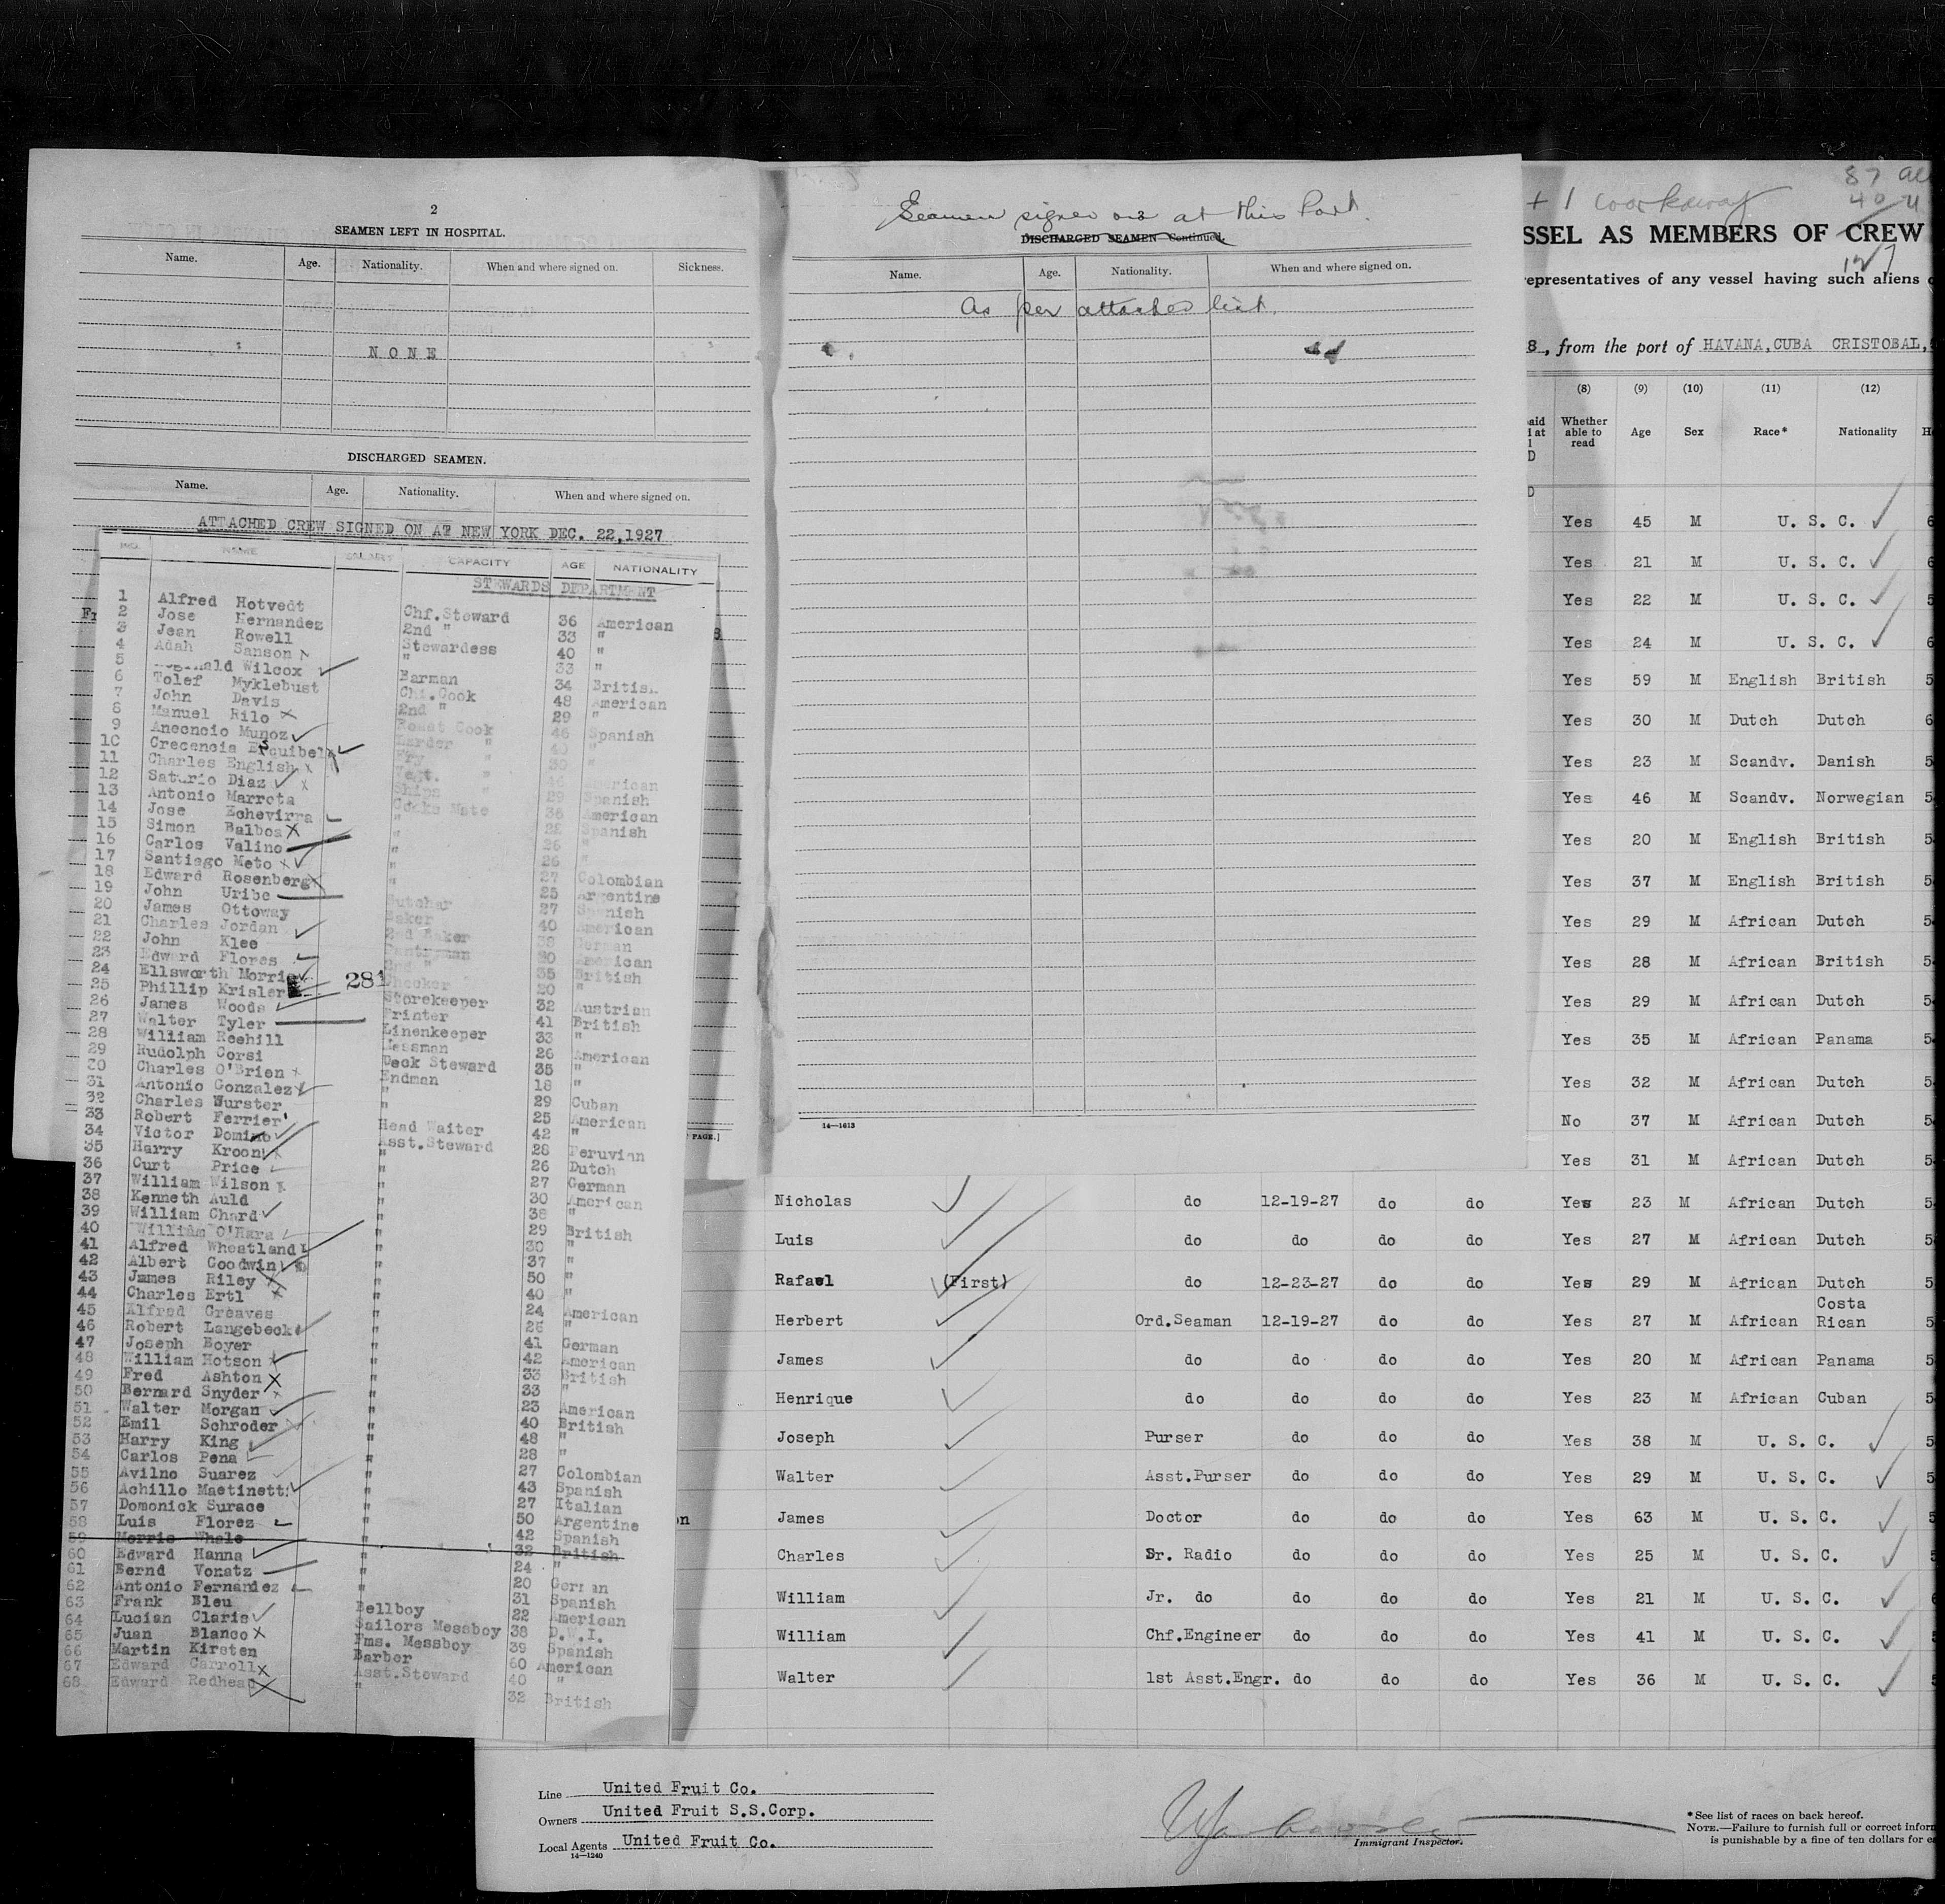 2
SEAMEN LEFT IN HOSPITAL.
Name. Age. Nationality. When and where signed on. Sickness.
NONE
DISCHARGED SEAMEN.
Name. Age. Nationality. When and where signed on.
ATTACHED CREW SIGNED ON AT NEW YORK DEC. 22,1927
NO. NAME SALARY CAPACITY AGE NATIONALITY
STEWARDS DEPARTMENT
1 Alfred Hotvedt Chf.Steward 36 American
2 Jose Hernandez 2nd " 33 "
3 Jean Rowell Stewardess 40 "
4 Adah Sanson " 33 "
5 Reginald Wilcox Barman 34 British
6 Tolef Myklebust Chf.Cook 48 American
7 John Davis 2nd " 29 "
8 Manuel Rilo Roast Cook 46 Spanish
9 Anconcio Munoz Larder " 40 "
10 Crecencia Esquibel Fry " 30 "
11 Charles English Vegt. " 46 American
12 Saturio Diaz Ships " 29 Spanish
13 Antonio Marrota Cooks Mate 36 American
14 Jose Echevirra " 22 Spanish
15 Simon Balbos " 26 "
16 Carlos Valino " 26 "
17 Santiago Meto " 27 Colombian
18 Edward Rosenberg Butcher 25 Argentine
19 John Uribe Baker 27 Spanish
20 James Ottoway 2nd Baker 40 American
21 Charles Jordan Pantryman 38 German
22 John Klee 2nd " 30 American
23 Edward Flores Checker 35 British
24 Ellsworth Morris Storekeeper 20 "
281
25 Phillip Krisler Printer 32 Austrian
26 James Woods Linenkeeper 41 British
27 Walter Tyler Messman 33 "
28 William Roehill Deck Steward 26 American
29 Rudolph Corsi Endman 35 "
30 Charles O'Brien " 18 "
31 Antonio Gonzalez " 29 Cuban
32 Charles Wurster Head Waiter 25 American
33 Robert Ferrier Asst.Steward 42 "
34 Victor Domino " 28 Peruvian
35 Harry Kroon " 26 Dutch
36 Curt Price " 27 German
37 William Wilson " 30 American
38 Kenneth Auld " 38 "
39 William Chard " 29 British
40 William O'Hara " 30 "
41 Alfred Wheatland " 37 "
42 Albert Goodwin " 50 "
43 James Riley " 40 "
44 Charles Ertl " 24 American
45 Alfred Greaves " 26 "
46 Robert Langebeck " 41 German
47 Joseph Boyer " 42 American
48 William Hotson " 33 British
49 Fred Ashton " 33 "
50 Bernard Snyder " 23 American
51 Walter Morgan " 40 British
52 Emil Schroder " 48 "
53 Harry King " 28 "
54 Carlos Pena " 27 Colombian
55 Avilno Suarez " 43 Spanish
56 Achillo Mastinetti " 27 Italian
57 Domonick Surace " 50 Argentine
58 Luis Florez " 42 Spanish
59 Morris Whale " 32 British
60 Edward Hanna " 24 "
61 Bernd Vonatz " 20 German
62 Antonio Fernandez " 31 Spanish
63 Frank Bleu Bellboy 22 American
64 Lucian Claris Sailors Messboy 38 D.W.I.
65 Juan Blanco Fms. Messboy 39 Spanish
66 Martin Kirsten Barber 60 American
67 Edward Carroll Asst.Steward 40 "
68 Edward Redhead " 32 British
PAGE.]
Seamen signed on at this Port.
DISCHARGED SEAMEN—Continued.
Name. Age. Nationality. When and where signed on.
As per attached list.
14—1613
+ 1 workaway
87 al
40 u
127
SSEL AS MEMBERS OF CREW
epresentatives of any vessel having such aliens
8, from the port of HAVANA,CUBA CRISTOBAL,
(8) (9) (10) (11) (12)
Whether able to read Age Sex Race* Nationality
Yes 45 M U. S. C.
Yes 21 M U. S. C.
Yes 22 M U. S. C.
Yes 24 M U. S. C.
Yes 59 M English British
Yes 30 M Dutch Dutch
Yes 23 M Scandv. Danish
Yes 46 M Scandv. Norwegian
Yes 20 M English British
Yes 37 M English British
Yes 29 M African Dutch
Yes 28 M African British
Yes 29 M African Dutch
Yes 35 M African Panama
Yes 32 M African Dutch
No 37 M African Dutch
Yes 31 M African Dutch
Nicholas do 12-19-27 do do Yes 23 M African Dutch
Luis do do do do Yes 27 M African Dutch
Rafael (First) do 12-23-27 do do Yes 29 M African Dutch
Herbert Ord.Seaman 12-19-27 do do Yes 27 M African Costa Rican
James do do do do Yes 20 M African Panama
Henrique do do do do Yes 23 M African Cuban
Joseph Purser do do do Yes 38 M U. S. C.
Walter Asst.Purser do do do Yes 29 M U. S. C.
on James Doctor do do do Yes 63 M U. S. C.
Charles Sr. Radio do do do Yes 25 M U. S. C.
William Jr. do do do do Yes 21 M U. S. C.
William Chf.Engineer do do do Yes 41 M U. S. C.
Walter 1st Asst.Engr. do do do Yes 36 M U. S. C.
Line United Fruit Co.
Owners United Fruit S.S.Corp.
Local Agents United Fruit Co.
14—1240
Immigrant Inspector.
*See list of races on back hereof.
NOTE.—Failure to furnish full or correct infor
is punishable by a fine of ten dollars for